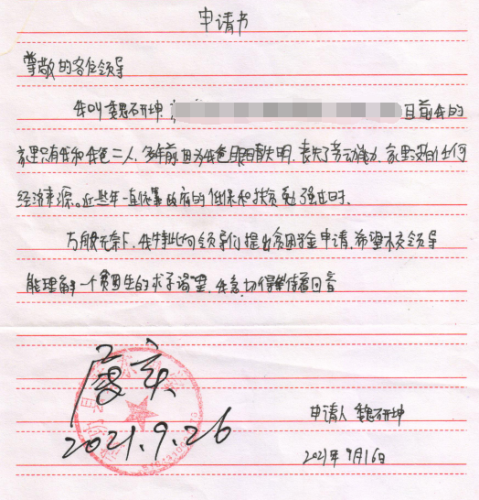 申请书
尊敬的各位领导
我叫 坤, 目前我的
家里只有我和我爸二人,多年前因为我爸眼睛失明,丧失了劳动能力,家里没有任何
经济来源。近些年一直依靠政府的低保和扶贫 度日。
万般无奈下,我特此向领导们提出贫困金申请,希望校领导
能理解一个贫困生的求学渴望,我急切得等待着回音
属实
2021.9.26
申请人 坤
2021年9月16日